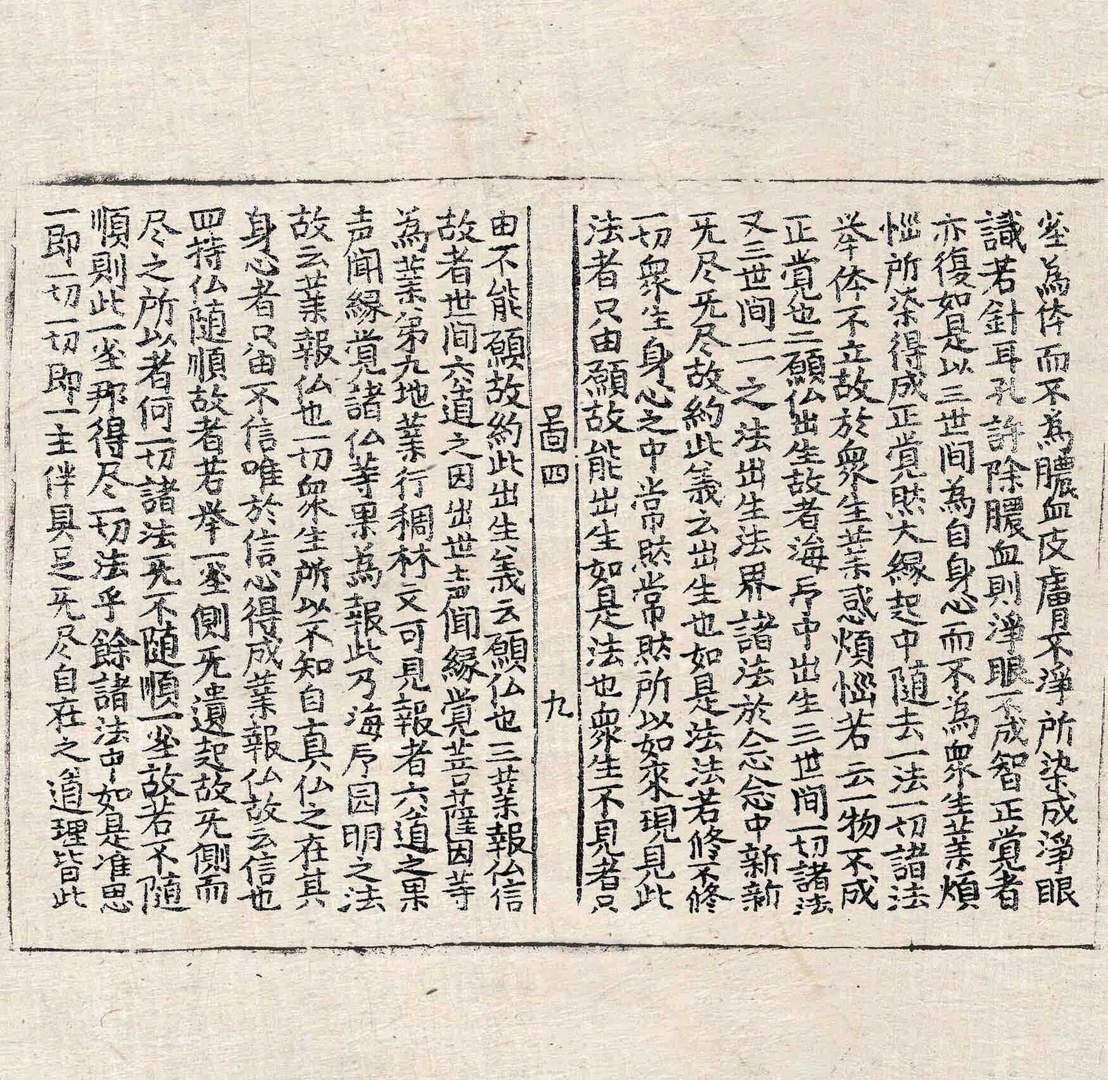 塵為体而不為膿血皮膚不淨所染成淨眼
識若針耳孔許除膿血則淨眼不成智正覚者
亦復如是以三世間為自身心而不為衆生業煩
惱所染得成正覚然大縁起中随去一法一切諸法
举体不立故於衆生業惑煩惱若云一物不成
正覚也二願仏出生故者海印中出生三世間一切諸法
又三世間一一之法出生法界諸法於念念中新新
旡尽旡尽故約此義云出生也如是法法若修不修
一切衆生身心之中常然常然所以如來現見此
法者只由願故能出生如是法也衆生不見者只
啚四 九
由不能願故約此出生義云願仏也三業報仏信
故者世間六道之因出世声聞縁覚菩薩因等
為業第九地業行稠林文可見報者六道之果
声聞縁覚諸仏等果為報此乃海印园明之法
故云業報仏也一切衆生所以不知自真仏之在其
身心者只由不信唯於信心得成業報仏故云信也
四持仏随順故者若举一塵側旡遺起故旡側而
尽之所以者何一切諸法旡不随順一塵故若不随
順則此一塵那得尽一切法乎餘諸法中如是准思
一即一切一切即一主伴具足旡尽自在之道理皆此